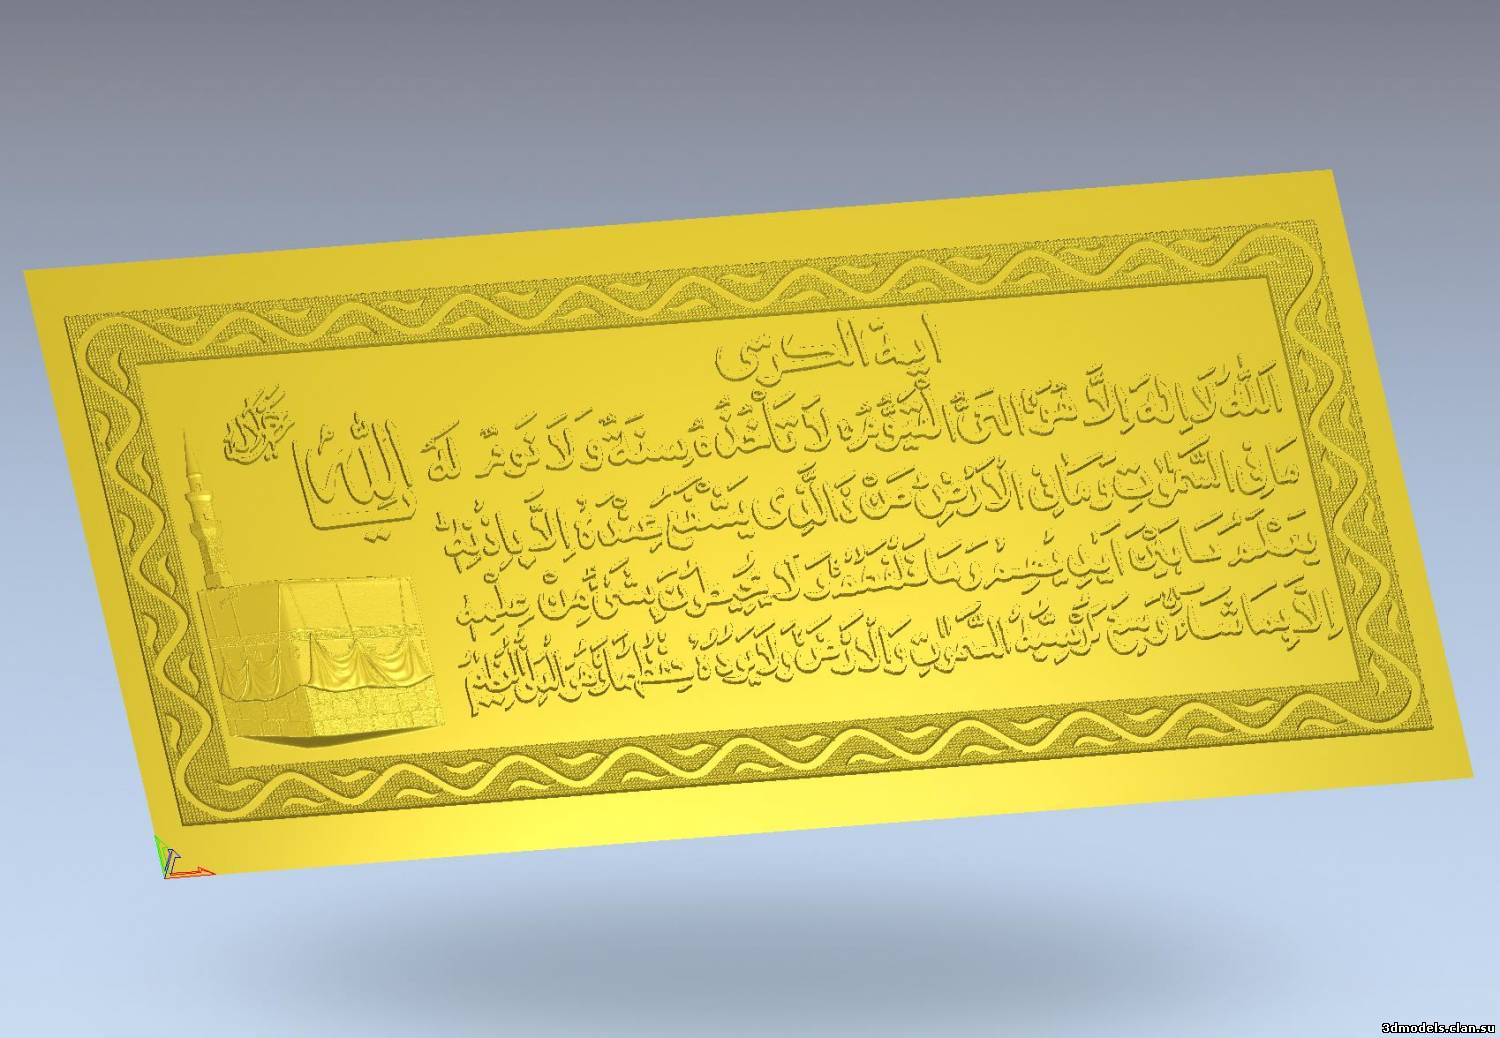 اية الكرسى
اَللّٰهُ لَا اِلٰهَ اِلَّا هُوَ الْحَىُّ الْقَيُّومُ لَا تَأْخُذُهُ سِنَةٌ وَلَا نَوْمٌ لَهُ
مَا فِى السَّمٰوَاتِ وَمَا فِى الْاَرْضِ مَنْ ذَا الَّذِى يَشْفَعُ عِنْدَهُ اِلَّا بِاِذْنِهِ
يَعْلَمُ مَا بَيْنَ اَيْدِيهِمْ وَمَا خَلْفَهُمْ وَلَا يُحِيطُونَ بِشَىْءٍ مِنْ عِلْمِهِ
اِلَّا بِمَا شَاءَ وَسِعَ كُرْسِيُّهُ السَّمٰوَاتِ وَالْاَرْضَ وَلَا يَؤُدُهُ حِفْظُهُمَا وَهُوَ الْعَلِىُّ الْعَظِيمُ
الله
جل جلاله
3dmodels.clan.su